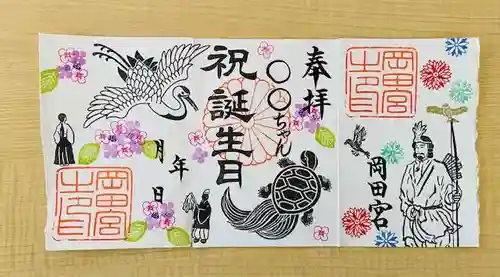 奉拝
岡田宮
〇〇ちゃん
祝誕生日
年
月
日
岡田宮
岡田宮